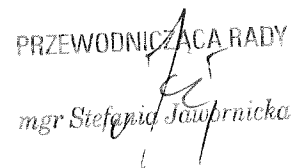 PRZEWODNICZĄCA RADY
mgr Stefania Jawornicka